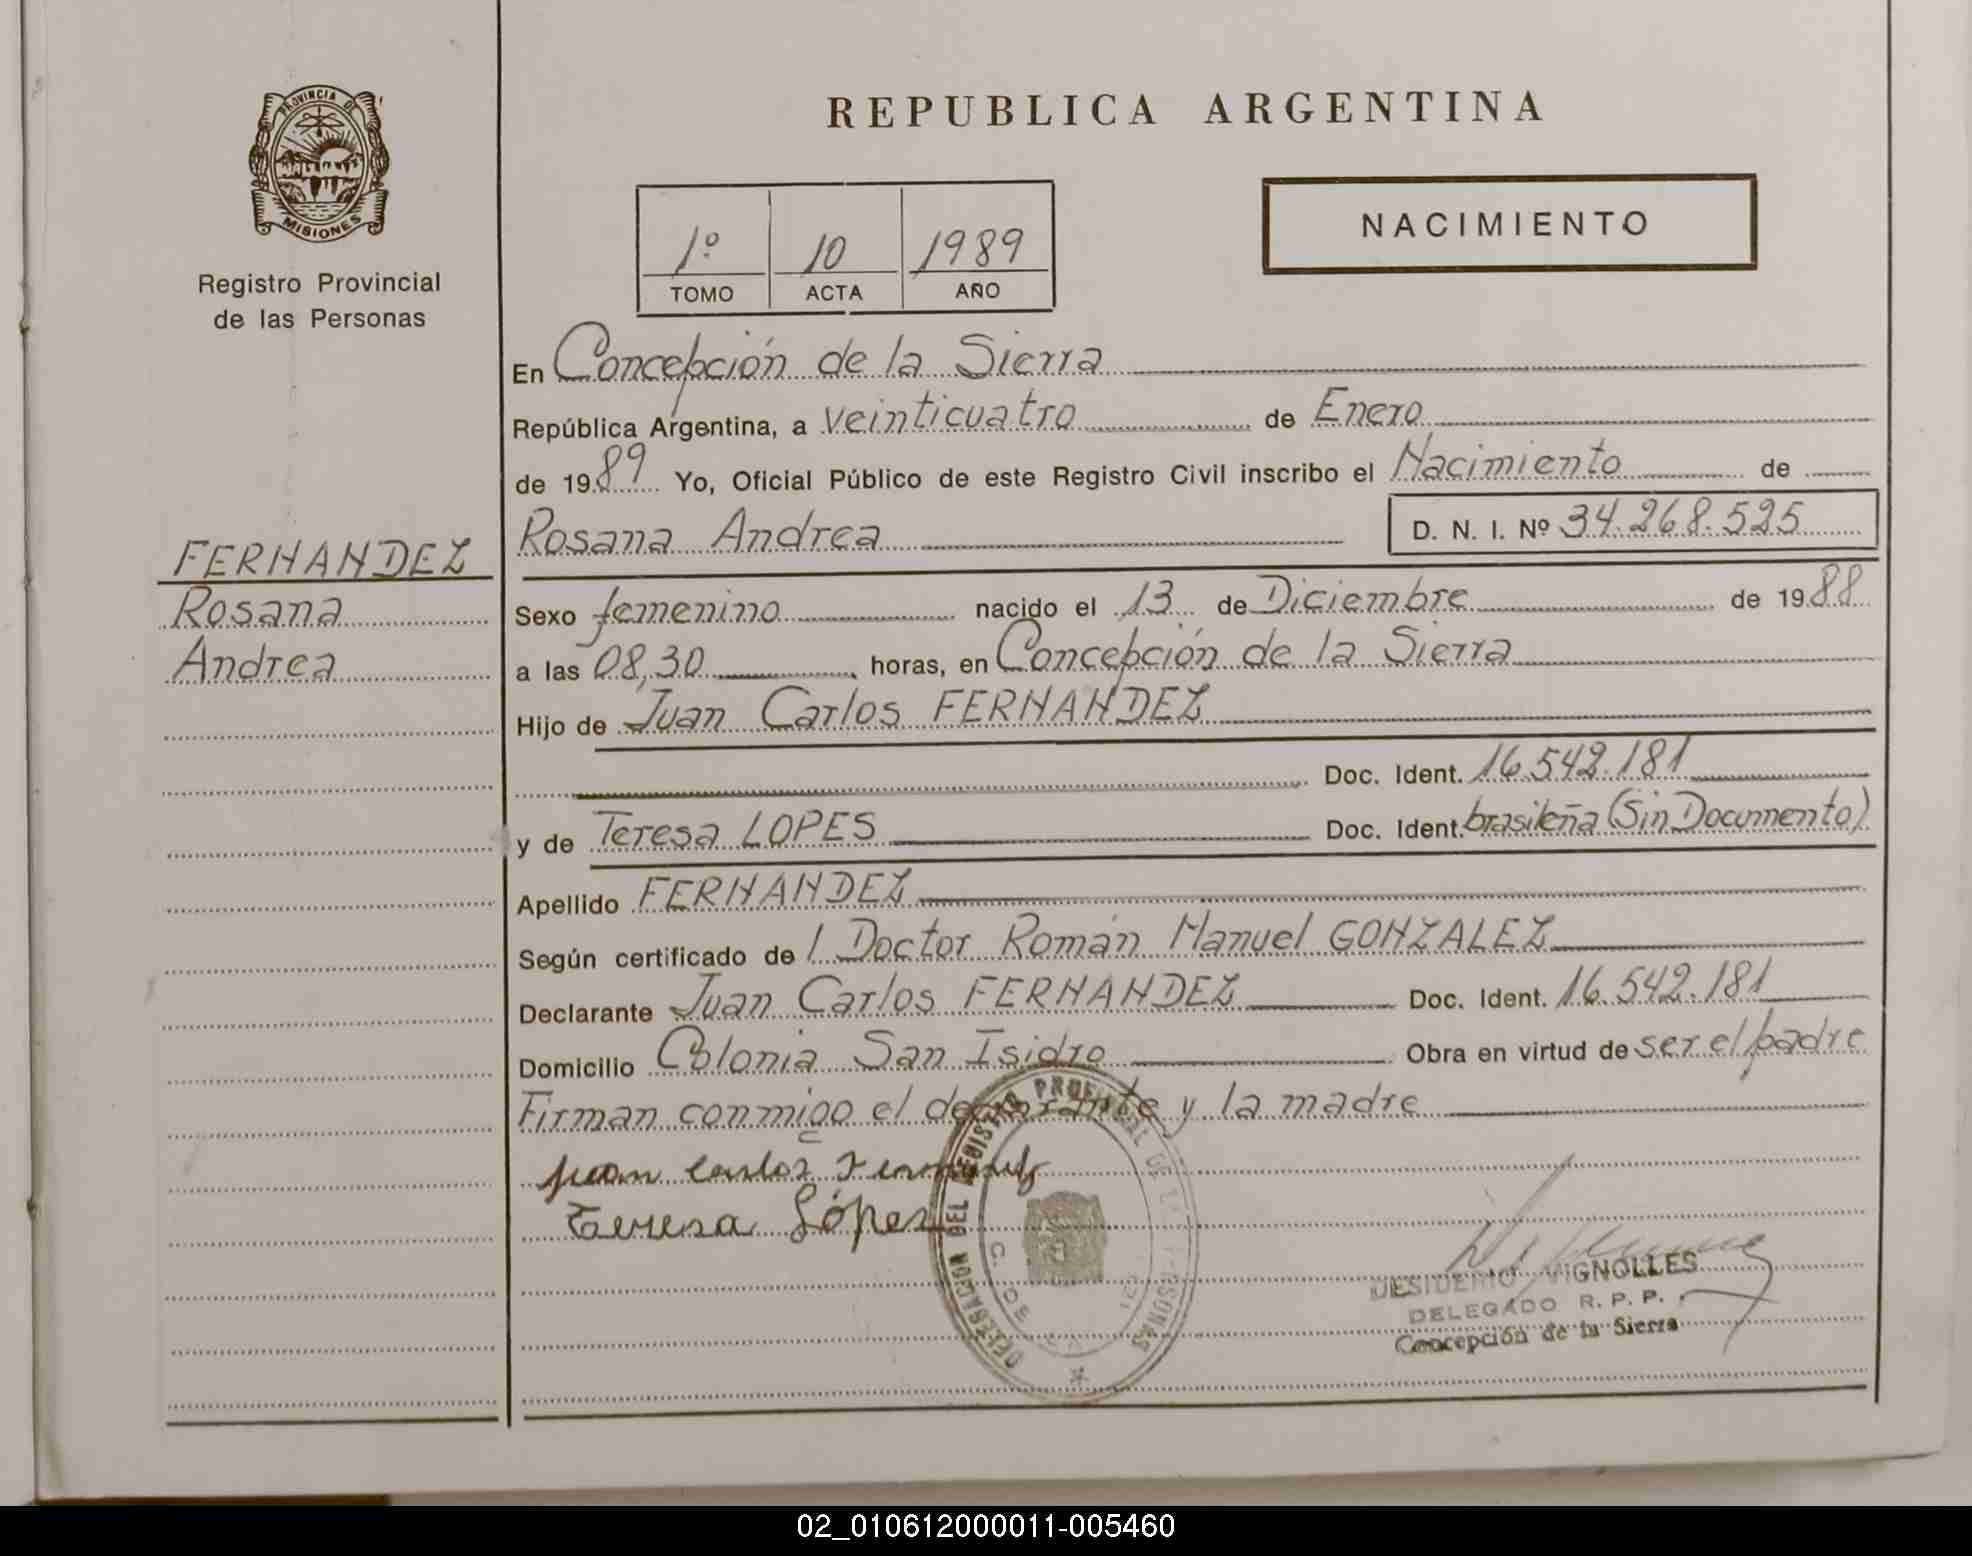 PROVINCIA DE
MISIONES
Registro Provincial
de las Personas
FERNANDEZ
Rosana
Andrea
REPUBLICA ARGENTINA
NACIMIENTO
1º 10 1989
TOMO ACTA AÑO
En Concepción de la Sierra
República Argentina, a veinticuatro de Enero
de 1989 Yo, Oficial Público de este Registro Civil inscribo el Nacimiento de
Rosana Andrea D. N. I. Nº 34.268.525
Sexo femenino nacido el 13 de Diciembre de 1988
a las 08,30 horas, en Concepción de la Sierra
Hijo de Juan Carlos FERNANDEZ
Doc. Ident. 16.542.181
y de Teresa LOPES Doc. Ident. brasileña (Sin Documento)
Apellido FERNANDEZ
Según certificado de l Doctor Román Manuel GONZALEZ
Declarante Juan Carlos FERNANDEZ Doc. Ident. 16.542.181
Domicilio Colonia San Isidro Obra en virtud de ser el padre
Firman conmigo el declarante y la madre
juan Carlos
Teresa Lópes
DELEGACION DEL REGISTRO PROVINCIAL DE LAS PERSONAS
DESIDERIO VIGNOLLES
DELEGADO R. P. P.
Concepción de la Sierra
02_010612000011-005460